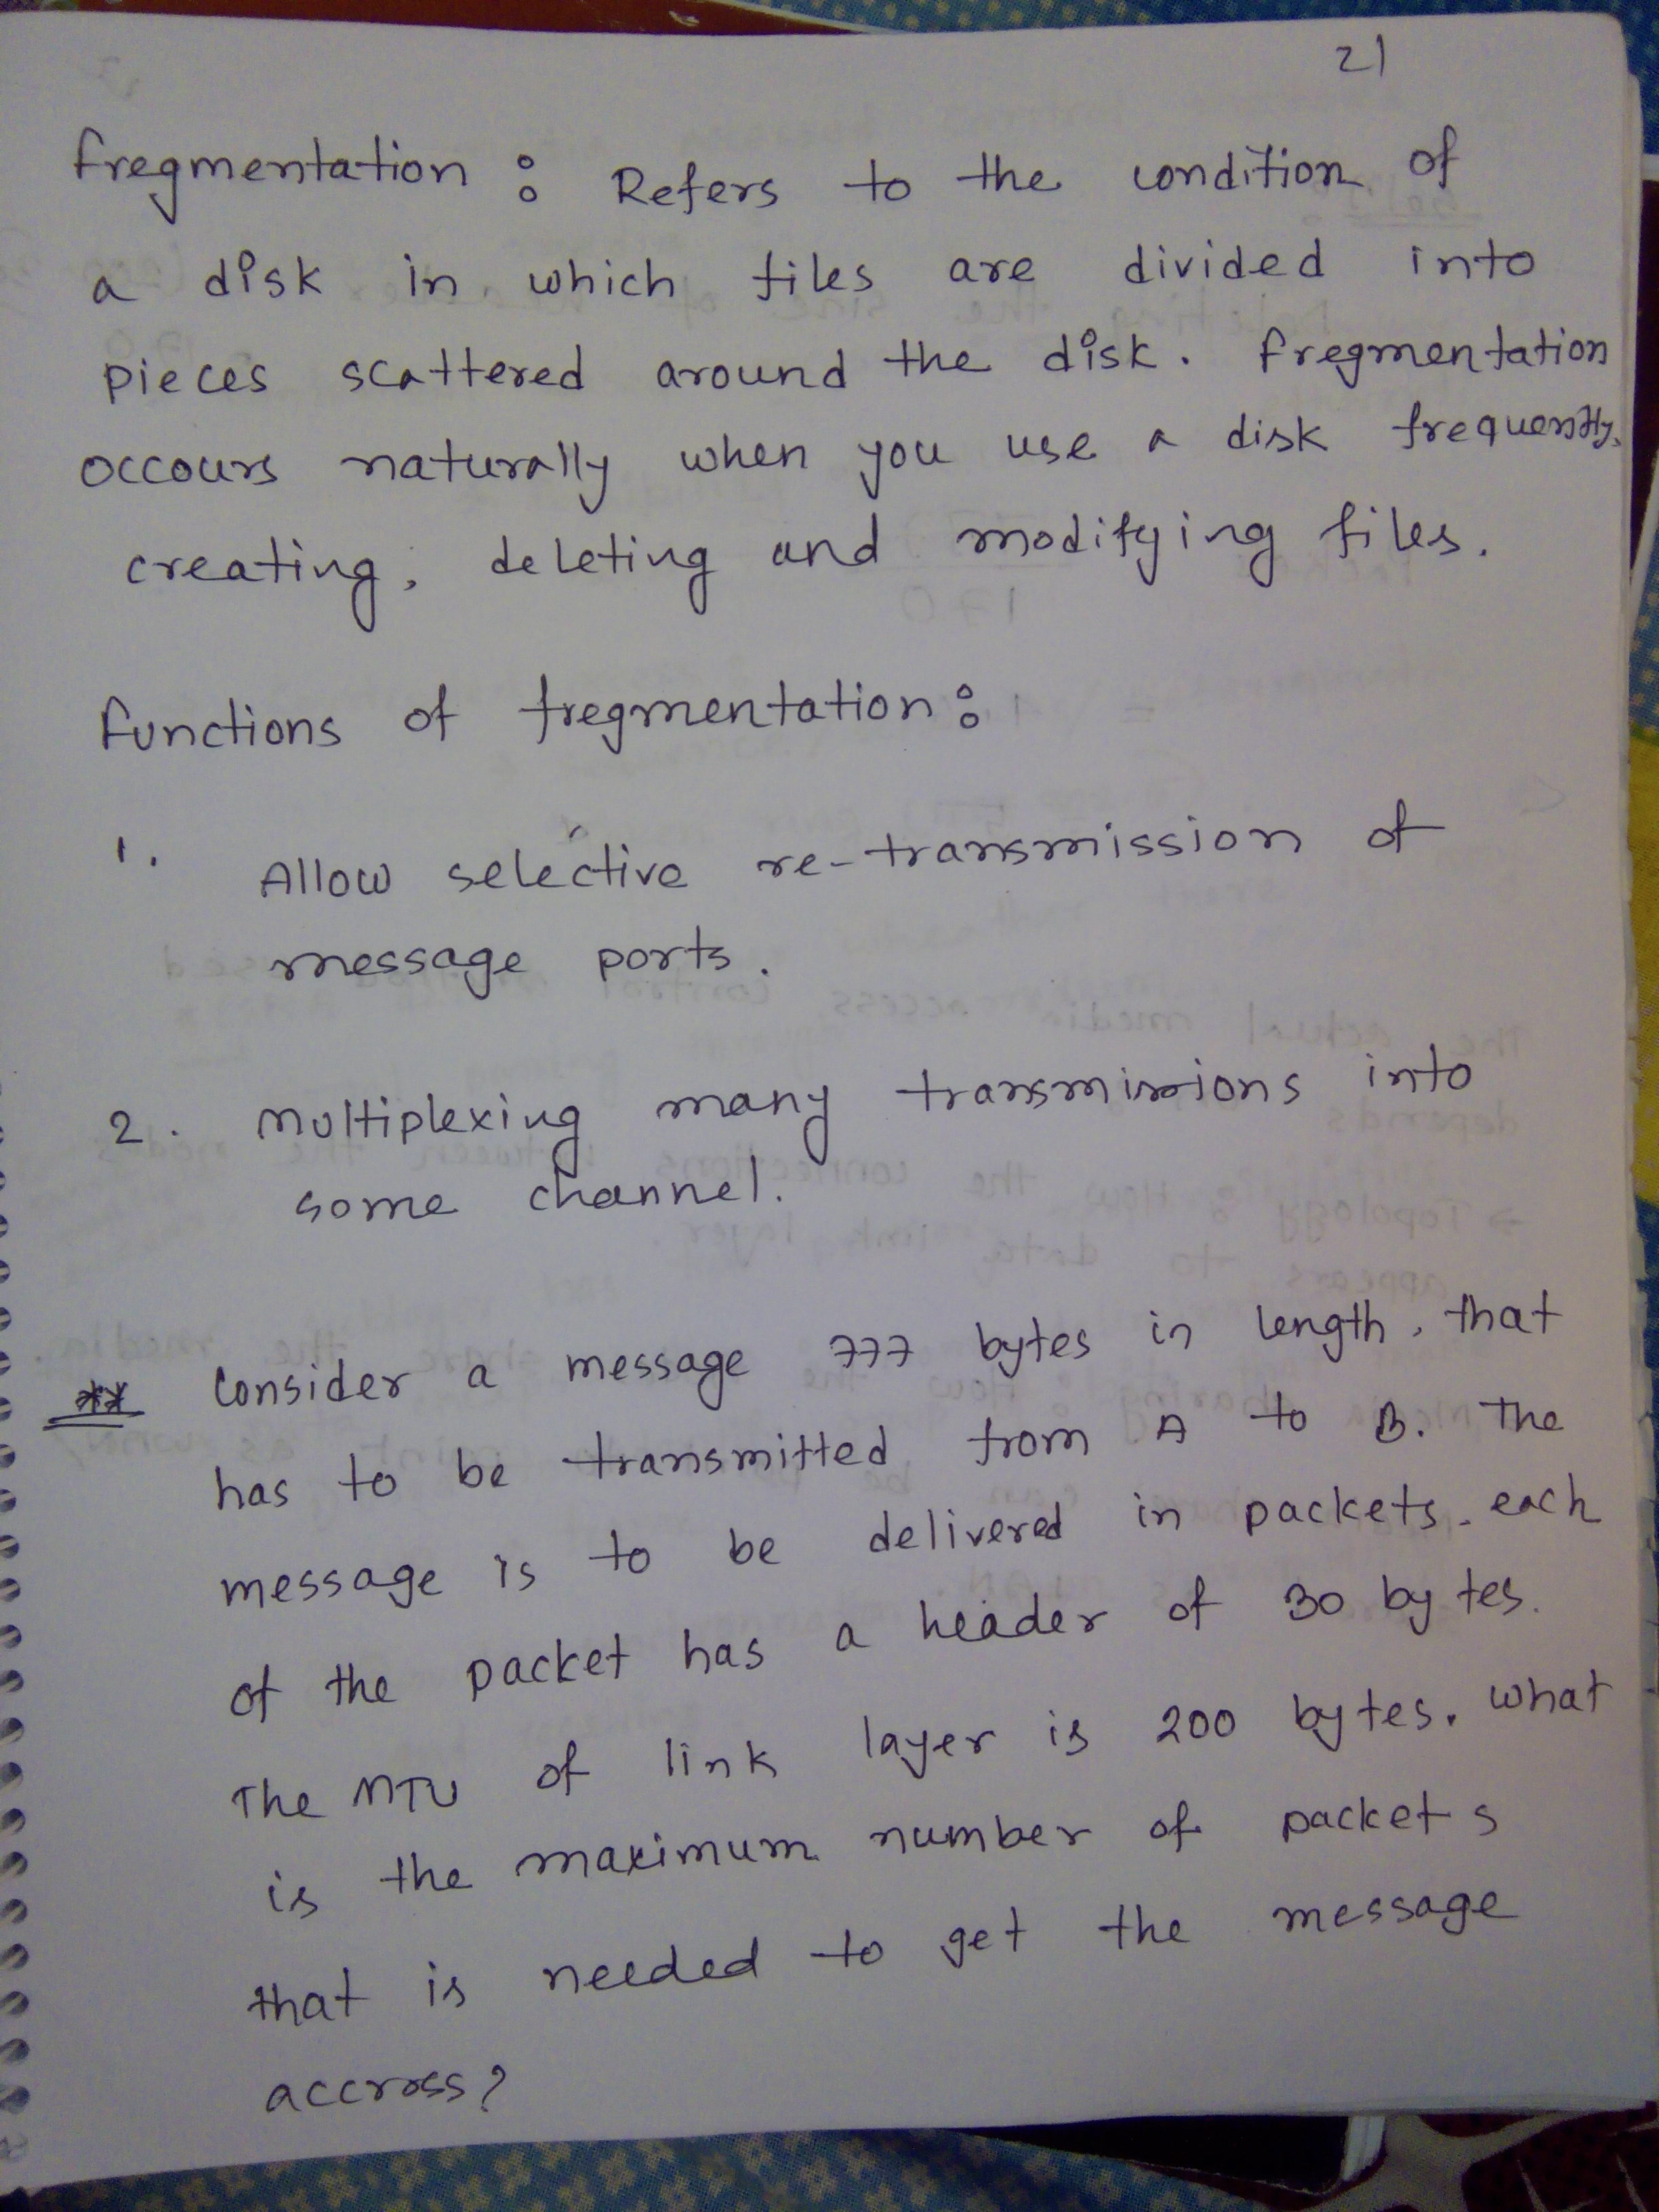 21
fregmentation : Refers to the condition of
a disk in which files are divided into
pieces scattered around the disk. fregmentation
occours naturally when you use a disk frequently,
creating, deleting and modifying files.
functions of fregmentation :
1. Allow selective re-transmission of
message ports.
2. Multiplexing many transmissions into
some channel.
** Consider a message 777 bytes in length, that
has to be transmitted from A to B. The
message is to be delivered in packets. each
of the packet has a header of 30 bytes.
The MTU of link layer is 200 bytes. what
is the maximum number of packets
that is needed to get the message
accross?